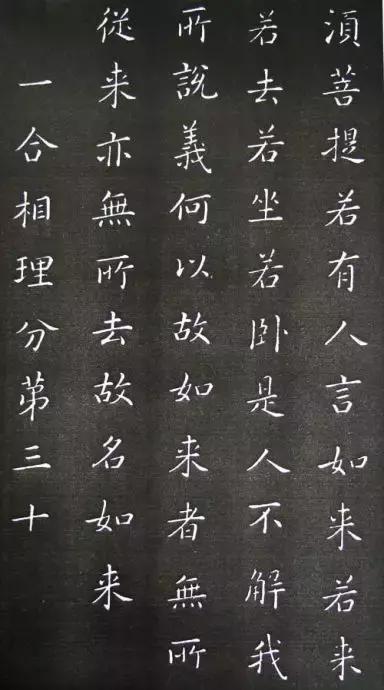 須菩提若有人言如来若来
若去若坐若卧是人不解我
所說義何以故如来者無所
從来亦無所去故名如来
一合相理分第三十